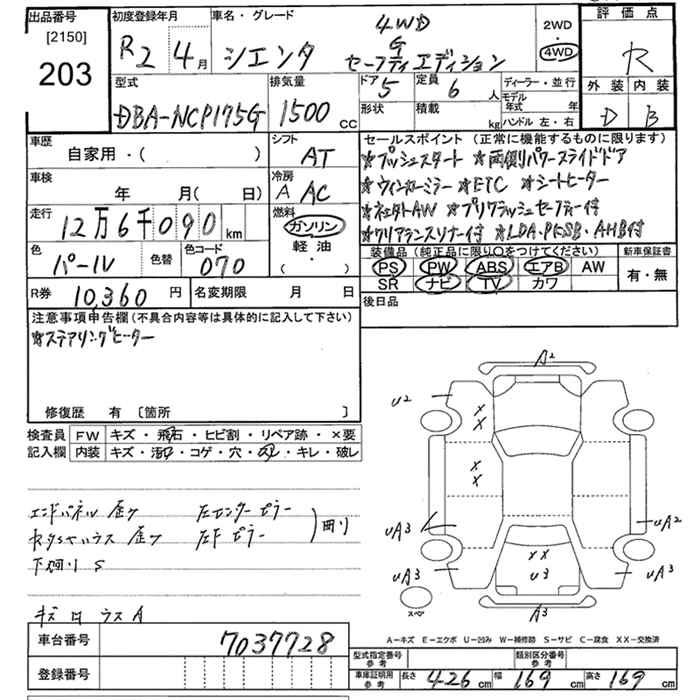 出品番号 [2150] 203
初度登録年月 R2年 4月
車名・グレード シエンタ 4WD G セーフティエディション
2WD ・ 4WD
評価点 R
外装 D 内装 B
型式 DBA-NCP175G
排気量 1500 CC
ドア 5 定員 6 人
形状 積載 kg
ディーラー・並行
モデル年式 年
ハンドル 左・右
車歴 自家用・( )
シフト AT
車検 年 月( 日)
冷房 A AC
走行 12万6千090 km
燃料 ガソリン 軽油 ( ・ )
色 パール 色替 色コード 070
R券 10,360 円 名変期限 月 日
セールスポイント (正常に機能するものに限ります)
☆プッシュスタート ☆両側パワースライドドア
☆ウィンカーミラー ☆ETC ☆シートヒーター
☆プリクラッシュセーフティー付
☆クリアランスソナー付 ☆LDA・PKSB・AHB付
装備品 (純正品に限り○をつけてください) 新車保証書
PS PW ABS エアB AW 有・無
SR ナビ TV カワ
後日品
注意事項申告欄 (不具合内容等は具体的に記入して下さい)
☆ステアリングヒーター
修復歴 有 [箇所 ]
検査員記入欄 FW キズ・飛石・ヒビ割・リペア跡・×要
内装 キズ・汚れ・コゲ・穴・スレ・キレ・破レ
エンドパネル 歪ケ 左センターピラー
左F ピラー
下廻り S
キズ
A2
U2
XX
XX
UA3
UA2
XX
U3
UA3
UA3
A3
スペア
A−キズ E−エクボ U−凹み W−補修跡 S−サビ C−腐食 XX−交換済
車台番号 7037728
登録番号
型式指定番号 参考 類別区分番号 参考
車庫証明用 参考 長さ 426 cm 幅 169 cm 高さ 169 cm